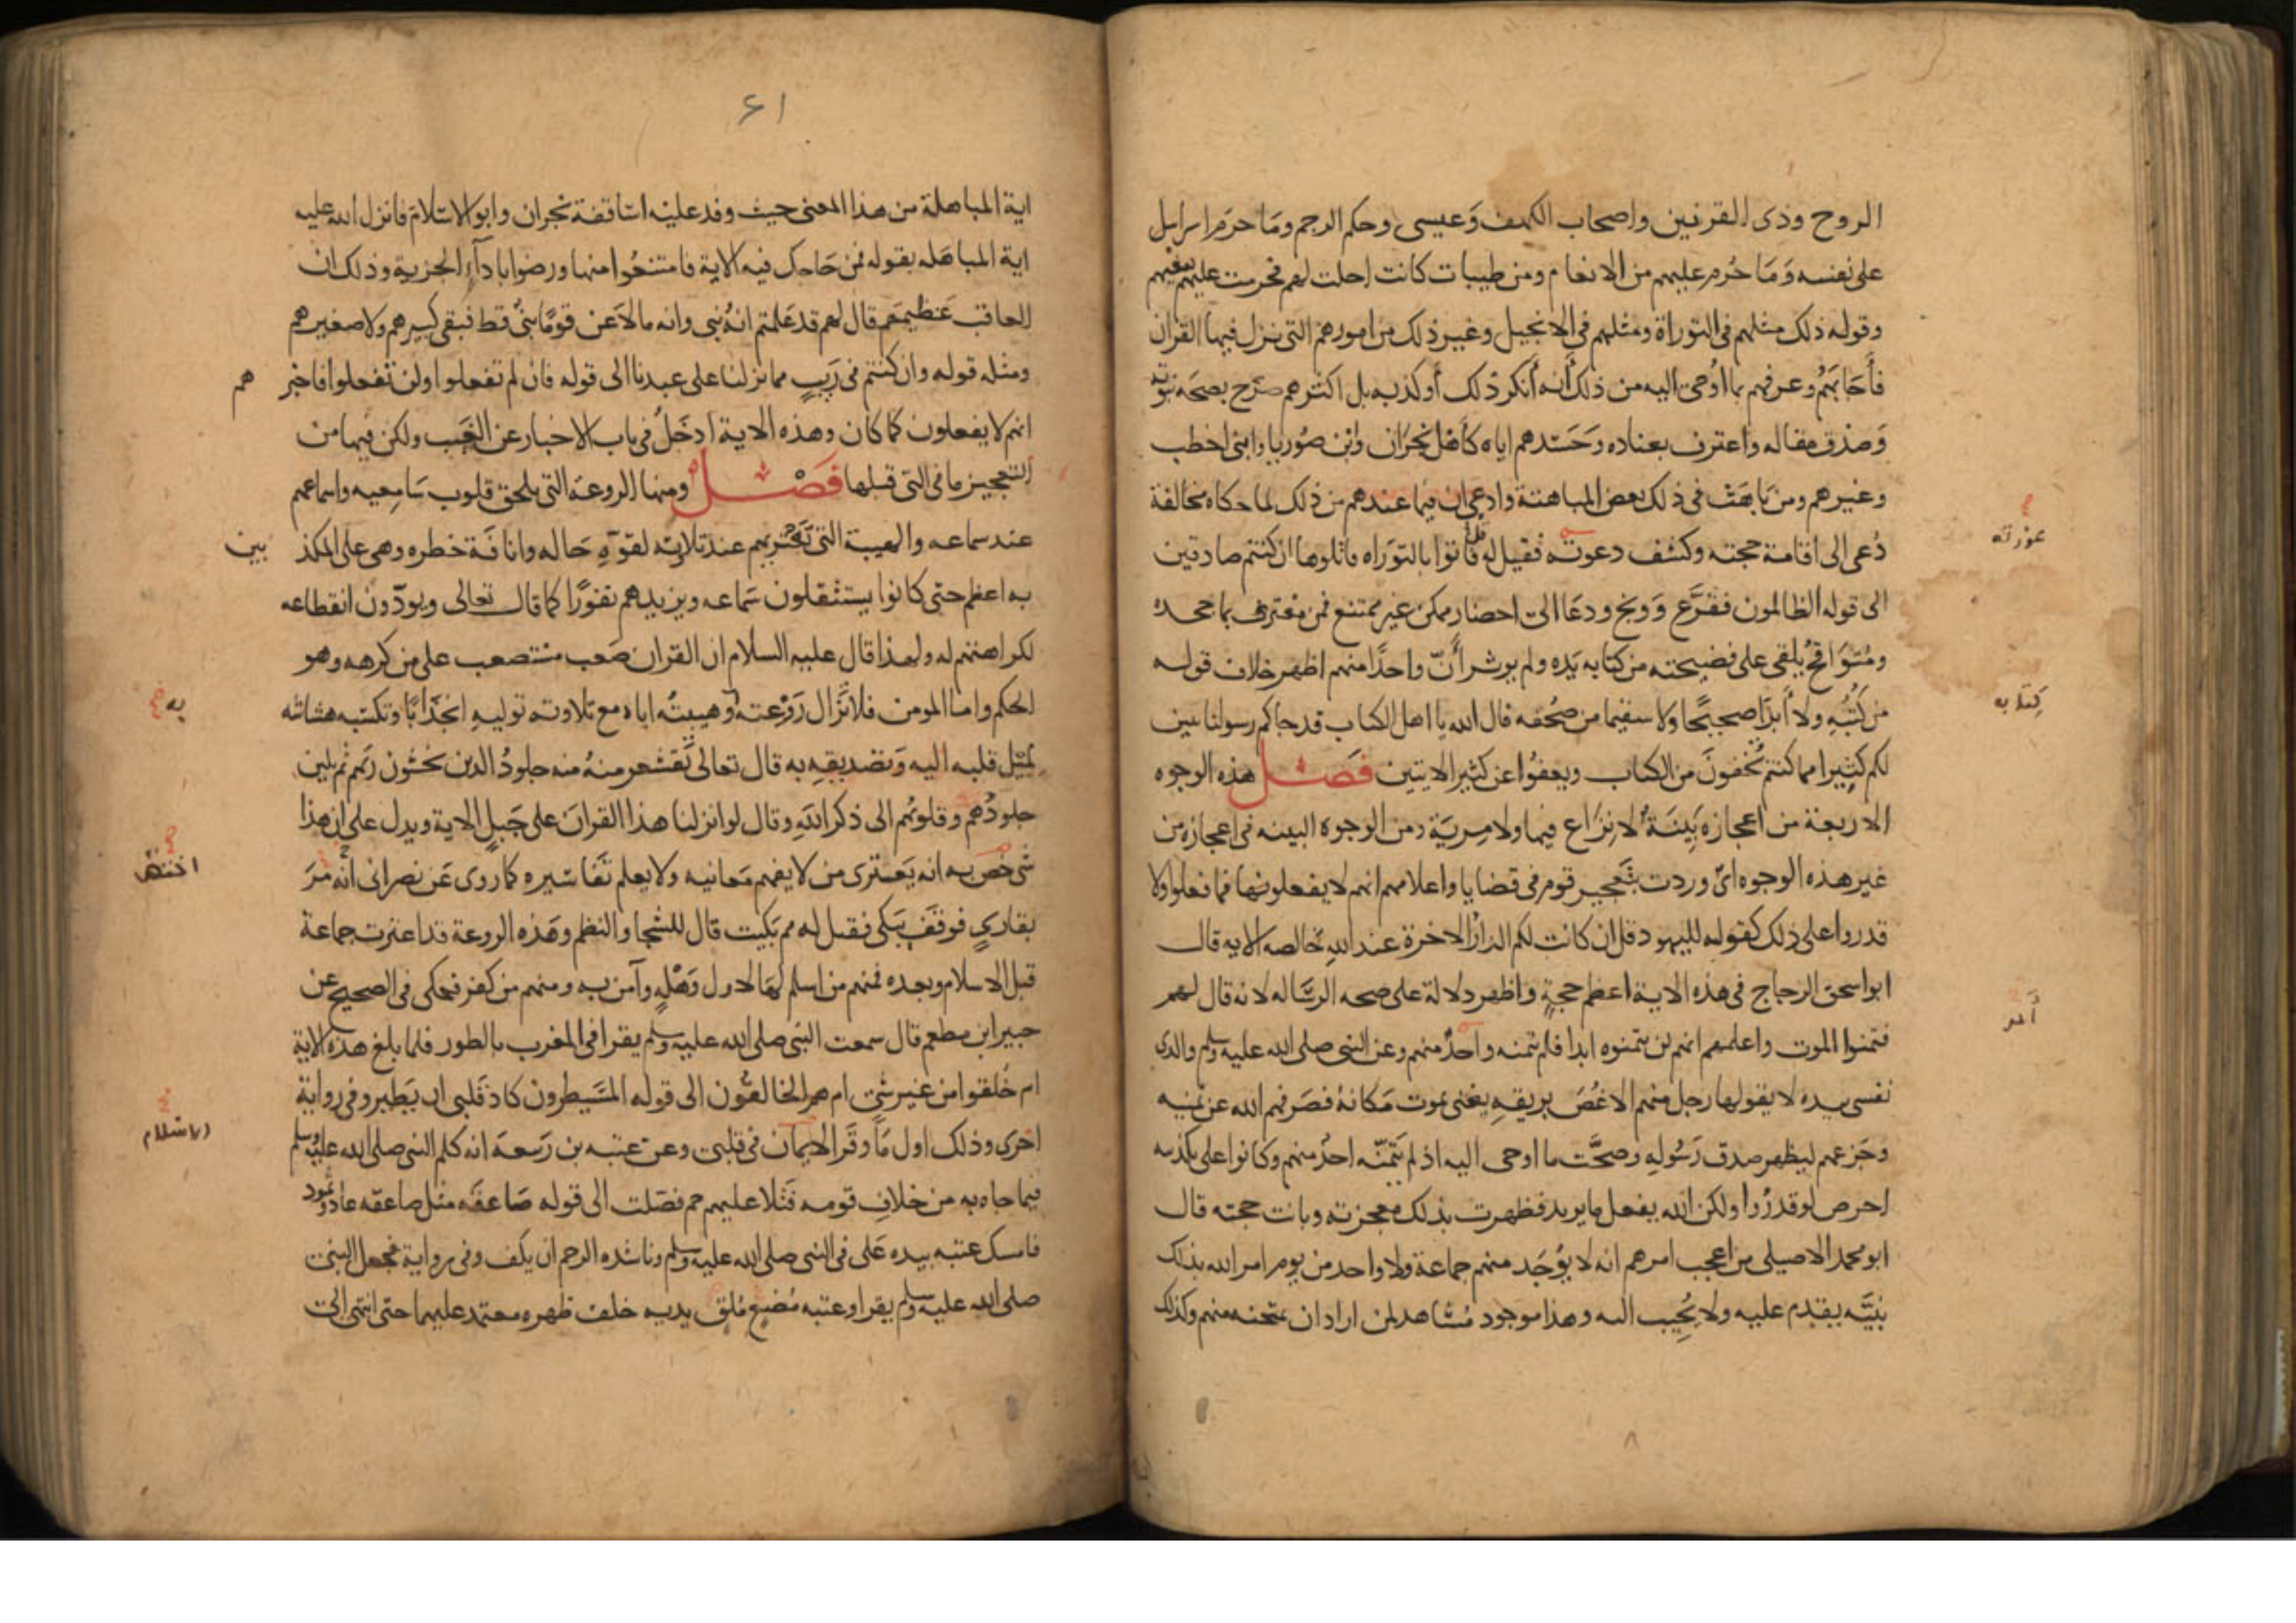 الروح وذى القرنين واصحاب الكهف وَعيسى وحكم الرجم ومَا حرّم اسرايل
على نفسه وَمَا حُرم عليهم من الانعام ومن طيبات كانت احلت لهم فحرمت عليهم ببغيهم
وقوله ذلك مثلهم فى التوراة ومثلهم فى الانجيل وغير ذلك من امورهم التى نزل فيها القران
فأَجَابَهُمْ وعرفهم بما اُوحى اليه من ذلك أَنه أَنكر ذلك أو كذبه بل اكثرهم صَرّح بصحَة نبوّته
وَصَدق مقاله واعترف بعناده وَحَسَدهم اياه كأَهل نجرَان وابن صُوريا وابنى اخطب
وغيرهم ومن بَاهَتَ فى ذلك بعض المباهتة وادعى ان فيما عندهم من ذلك لما حكاه مخالفة
دُعى الى اقامة حجته وكشف دعوته فقيل له قل فاتوا بالتوَراه فاتلوها ان كنتم صادقين
الى قوله الظالمون فقرَّع وَوبخ ودعَا الى احضار ممكن غير ممتنع فمن معترف بما جحده
ومُتوَاقحٍ يُلقى على فضيحته من كتابه يَده ولم يوثر أَنّ واحدًا منهم اظهر خلاف قوله
من كُتُبِهِ ولا أَبدَا صحيحًا ولا سقيما من صُحُفه قال الله يا اهل الكتاب قد جاكم رسولنا يبين
لكم كثِيرا مما كنتم تُخفونَ من الكتاب ويعفوُا عن كثير الايتين فَصْل هذه الوجوه
الاربعة من اعجازه بَيِنَةٌ لا نِزَاع فيها ولا مِريَة ومن الوجوه البينه فى اعجازه من
غير هذه الوجوه اىٌ وردت بتَعجيز قوم فى قضايا واعلامهم انهم لا يفعلونها فما فعلوا ولا
قدروا على ذلك كقوله لليهود قل ان كانت لكم الدارُ الاخرة عند اللهِ خالصه الايه قال
ابو اسحق الزجاج فى هذه الاية اعظم حجةٍ واظهر دلالة على صحه الرسَاله لانه قال لهم
فتمنوا الموت واعلمهم انهم لن يتمنوه ابدا فلم يتمنه واحدٌ منهم وعن النبى صلى الله عليه وسلم والذى
نفسى بيده لا يقولها رجل منهم الا غُصَ بريقهِ يعنى يموت مَكانهُ فصَرفهم الله عن تمنيه
وجَزعهم ليظهر صدق رَسُولهِ وصحَّت ما اوحى اليه اذ لم يَتمنّه احدٌ منهم وكانوا على تكذيبه
احرص لو قدرُوا ولكن الله يفعل ما يريد فظهرت بذلك معجزته وبانت حجته قال
ابو محمد الاصيلى من اعجب امرهم انه لا يوُجَد منهم جماعة ولا واحد من يوم امر الله بذلك
نبيَّه يقدم عليه ولا يُجيب اليه وهذا موجود مُشاهد لمن اراد ان يمتحنه منهم وكذلك
عورته
كِتابه
اَمر
٦١
اية المباهلة من هذا المعنى حيث وفد عليه اسَاقفة نجران وابوا الاسْلامَ فانزل الله عليه
اية المباهَله بقوله فمن حَاجك فيه الاية فامتنعُوا منها ورضوا باداءِ الجزية وذلك ان
العاقب عَظيمهُم قال لهم قد عَلمتم انهُ نبى وانه ما لاعَن قومًا نبىٌ قط فبقى كبيرهم ولا صغيرهم
ومثله قوله وان كنتم فى رَيبٍ مما نزلنا على عبدنا الى قوله فان لم تفعلوا ولن تفعلوا فاخبر هم
انهم لا يفعلون كما كان وهذه الاية أدخَلُ فى باب الاخبار عن الغَيب ولكن فيها من
التعجيز ما فى التى قبلها فَصْل ومنها الروعَة التى تلحق قلوب سَامعيه واسماعهم
عند سماعه والهيبة التى تَعْترِيهم عند تلاوته لقوّةِ حَاله وانافَة خطره وهى على المكذ بين
به اعظم حتى كانوا يستثقلون سَماعه ويزيدهم نفورًا كما قال تعالى ويودّون انقطاعه
لكراهتهم له ولهذا قال عليه السلام ان القران صَعب مستصعب على من كرهه وهو
الحكم واما المومن فلا تزَال رَوْعته وهيبتُه اياه مع تلاوته توليهِ انجذابًا وتكسبه هشاشه
لمَيْل قلبه اليه وَتصديقهِ به قال تعالى تَقشعر منهُ جلودُ الذين يخشون ربهم ثم تلين
جلودُهم وقلوبُهم الى ذكر اللهِ وقال لو انزلنا هذا القرانَ على جَبلٍ الاية ويدل على ان هذا
شى خُصّ به انه يَعترى من لا يفهم مَعانيه ولا يعلم تَفاسيره كما روى عَن نصرانى أَنه مَرّ
بقارىٍ فوقَف يَبكى فقيل له مم بَكيت قال للشجا والنظم وهَذه الروعة قد اعترت جماعة
قبل الاسلام وبعده فمنهم من اسلم لهَا لاول وَهْلةٍ وآمن به ومنهم من كفر فحكى فى الصحيح عن
جبير ابن مطعم قال سمعت النبى صلى الله عليه وسلم يقرا فى المغرب بالطور فلما بلغ هذه الاية
ام خُلقوا من غير شى ام هم الخالقون الى قوله المسَيطرون كاد قَلبى ان يَطير وفى رواية
اخرى وذلك اول مَا وقَر الايمان فى قلبى وعن عتبه بن رَبيعهَ انه كلم النبى صلى الله عليه وسلم
فيما جاء به من خلافِ قومه فَتلا عليهم حم فصّلت الى قوله صَاعقَه مثل صاعقه عاد وثمود
فامسك عتبه بيده عَلى فى النبى صلى الله عليه وسلم وناشده الرحم ان يكف وفى رواية فجعل النبى
صلى الله عليه وسلم يقرا وعتبه مُصْغٍ مُلقٍ يديه خلف ظهره معتمد عليهما حتى انتهى الى
به
الاسلام